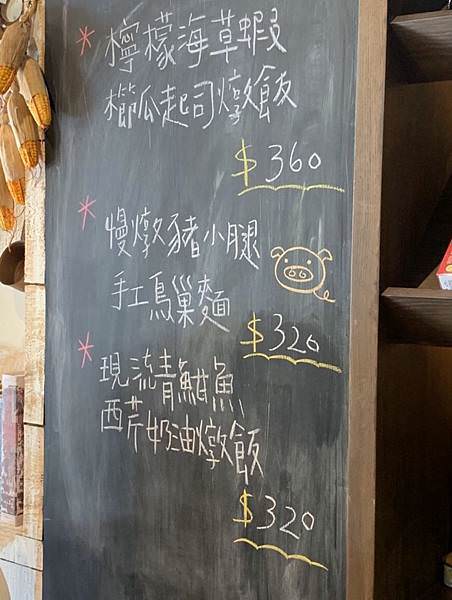 * 檸檬海草蝦
櫛瓜起司燉飯
$360
* 慢燉豬小腿
手工鳥巢麵
$320
* 現流青魽魚
西芹奶油燉飯
$320